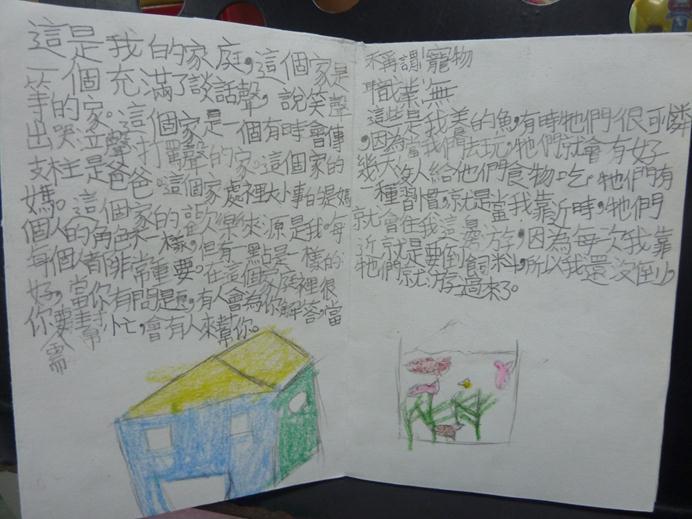 這是我的家庭，這個家是
一個充滿了談話聲，說笑聲
等的家。這個家是一個有時會傳
出哭泣聲打罵聲的家。這個家的
支柱是爸爸。這個家處裡大小事的是媽
媽。這個家的歡樂來源是我。每
個人的角色不一樣，但有一點是一樣的：
每個人都非常重要。在這個家庭裡很
好，當你有問題，有人會為你解答，當
你需要幫忙，會有人來幫你。
稱謂：寵物
職業：無
這些是我養的魚，有時牠們很可憐
，因為當我們去玩，牠們就會有好
幾天沒人給他們食物吃。牠們有
一種習慣，就是當我靠近時，牠們
就會往我這邊游，因為每次我靠
近就是要倒飼料，所以我還沒倒，
牠們就游過來了。